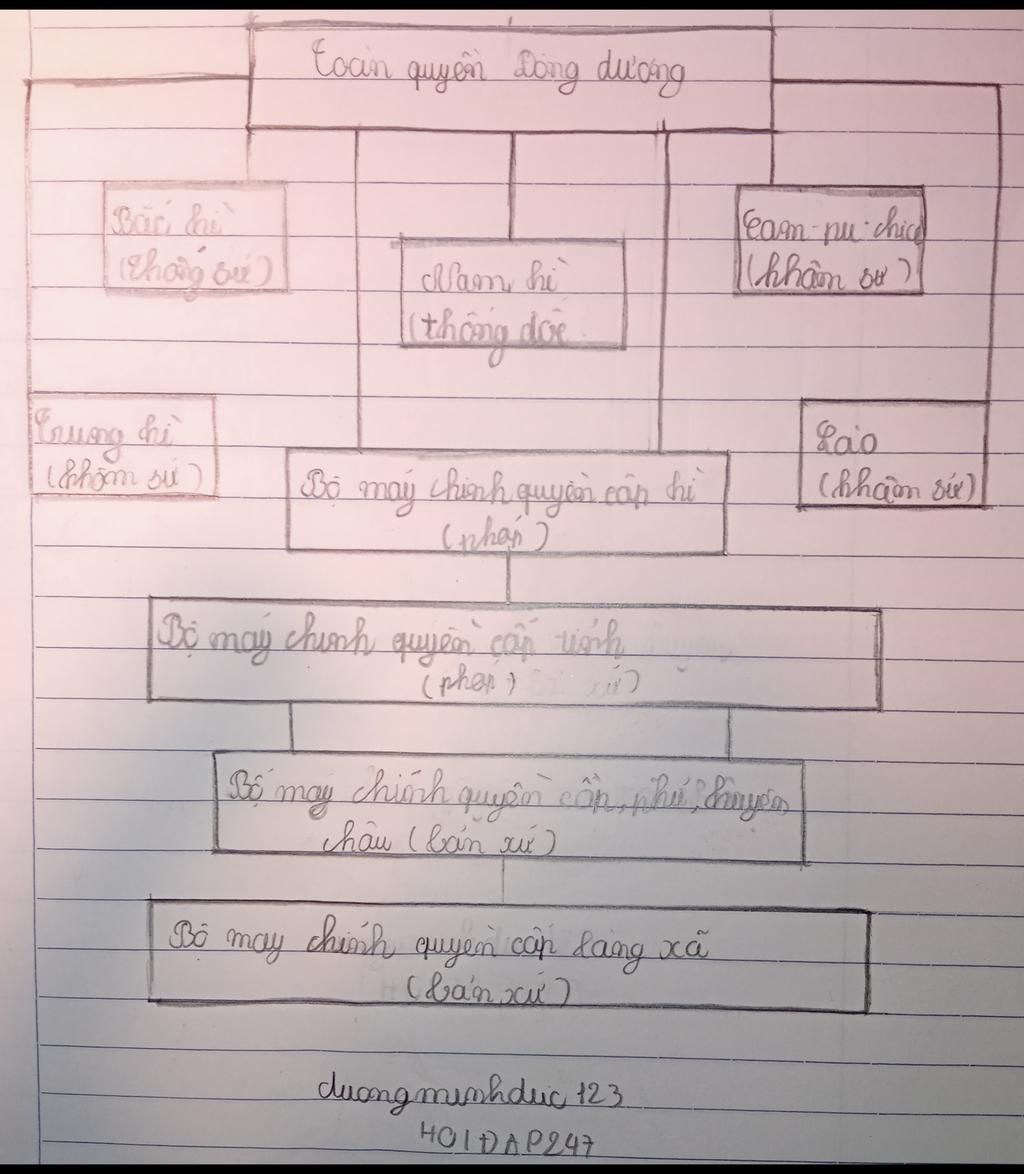 Toàn quyền Đông dương
Bắc kì
(thống sứ)
Cam-pu-chia
(khâm sứ)
Nam kì
(thống đốc
Trung kì
(khâm sứ)
Lào
(khâm sứ)
Bộ máy chính quyền cấp kì
(pháp)
Bộ máy chính quyền cấp tỉnh
(pháp)
Bộ máy chính quyền cấp, phủ, huyện,
châu (bản xứ)
Bộ máy chính quyền cấp làng xã
(bản xứ)
duongminhduc 123
HOIĐAP247